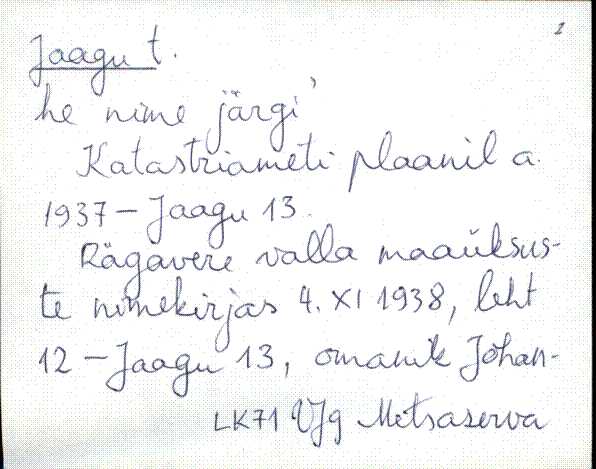 2
Jaagu t.
he nime järgi
Katastriameti plaanil a.
1937 – Jaagu 13.
Rägavere valla maaüksus-
te nimekirjas 4. XI 1938, leht
12 – Jaagu 13, omanik Johan-
LK71 VJg Metsaserva